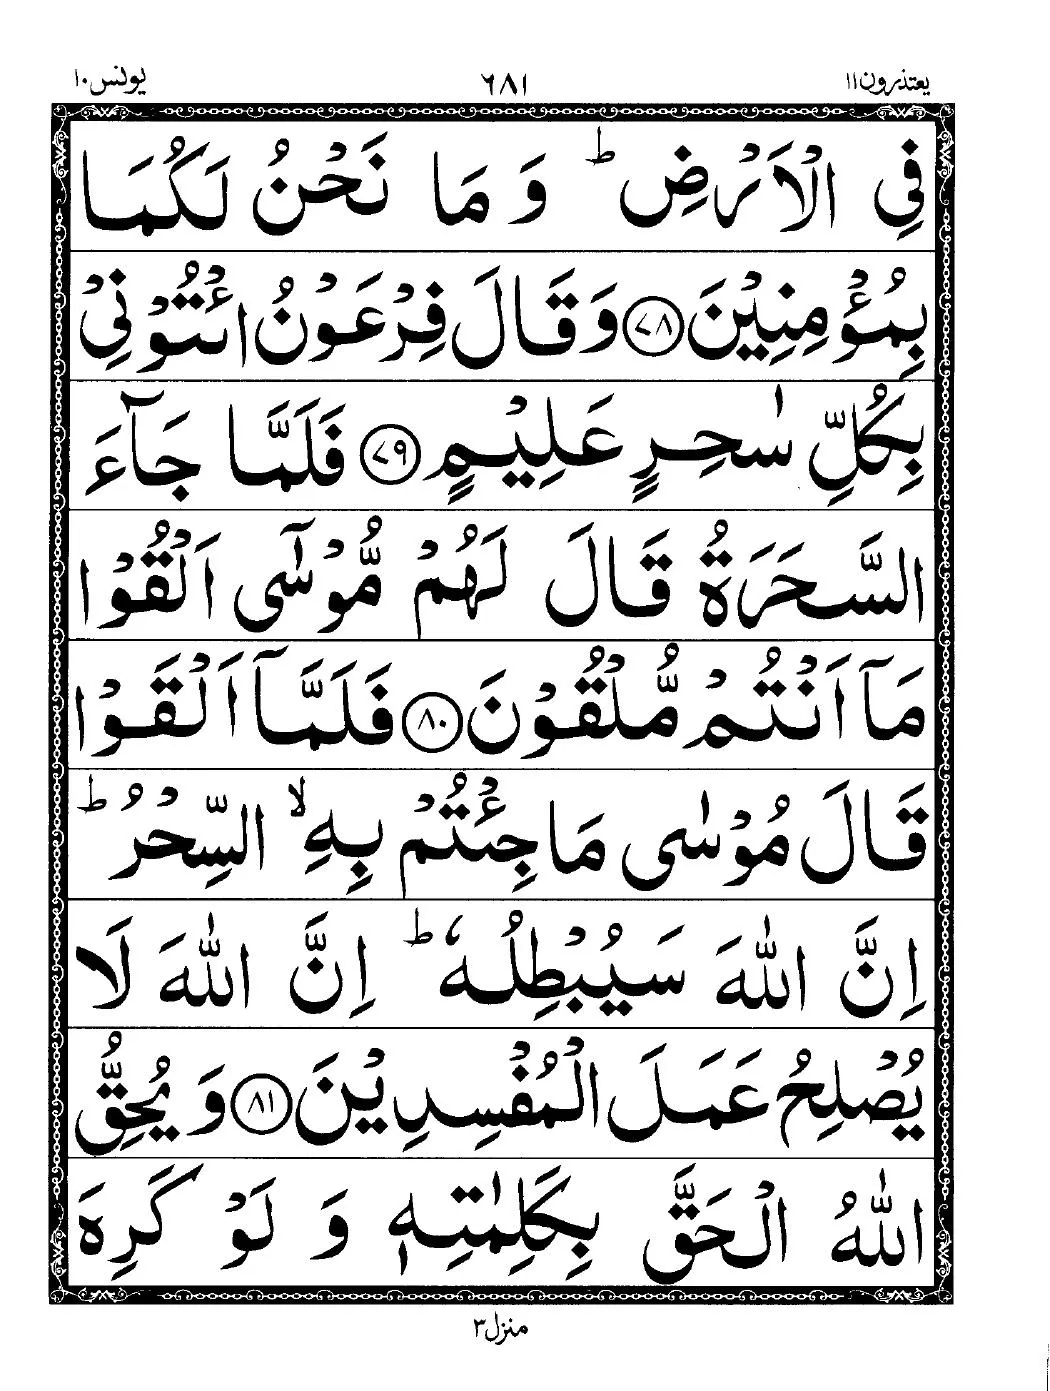 یعتذرون۱۱ ۶۸۱ یونس۱۰
فِی الْاَرْضِ ؕ وَ مَا نَحْنُ لَكُمَا
بِمُؤْمِنِیْنَ ﴿۷۸﴾ وَقَالَ فِرْعَوْنُ ائْتُوْنِیْ
بِكُلِّ سٰحِرٍ عَلِیْمٍ ﴿۷۹﴾ فَلَمَّا جَآءَ
السَّحَرَةُ قَالَ لَهُمْ مُّوْسٰۤی اَلْقُوْا
مَاۤ اَنْتُمْ مُّلْقُوْنَ ﴿۸۰﴾ فَلَمَّاۤ اَلْقَوْا
قَالَ مُوْسٰی مَا جِئْتُمْ بِهِ ۙ السِّحْرُ ؕ
اِنَّ اللّٰهَ سَیُبْطِلُهٗ ؕ اِنَّ اللّٰهَ لَا
یُصْلِحُ عَمَلَ الْمُفْسِدِیْنَ ﴿۸۱﴾ وَ یُحِقُّ
اللّٰهُ الْحَقَّ بِكَلِمٰتِهٖ وَ لَوْ كَرِهَ
منزل۳